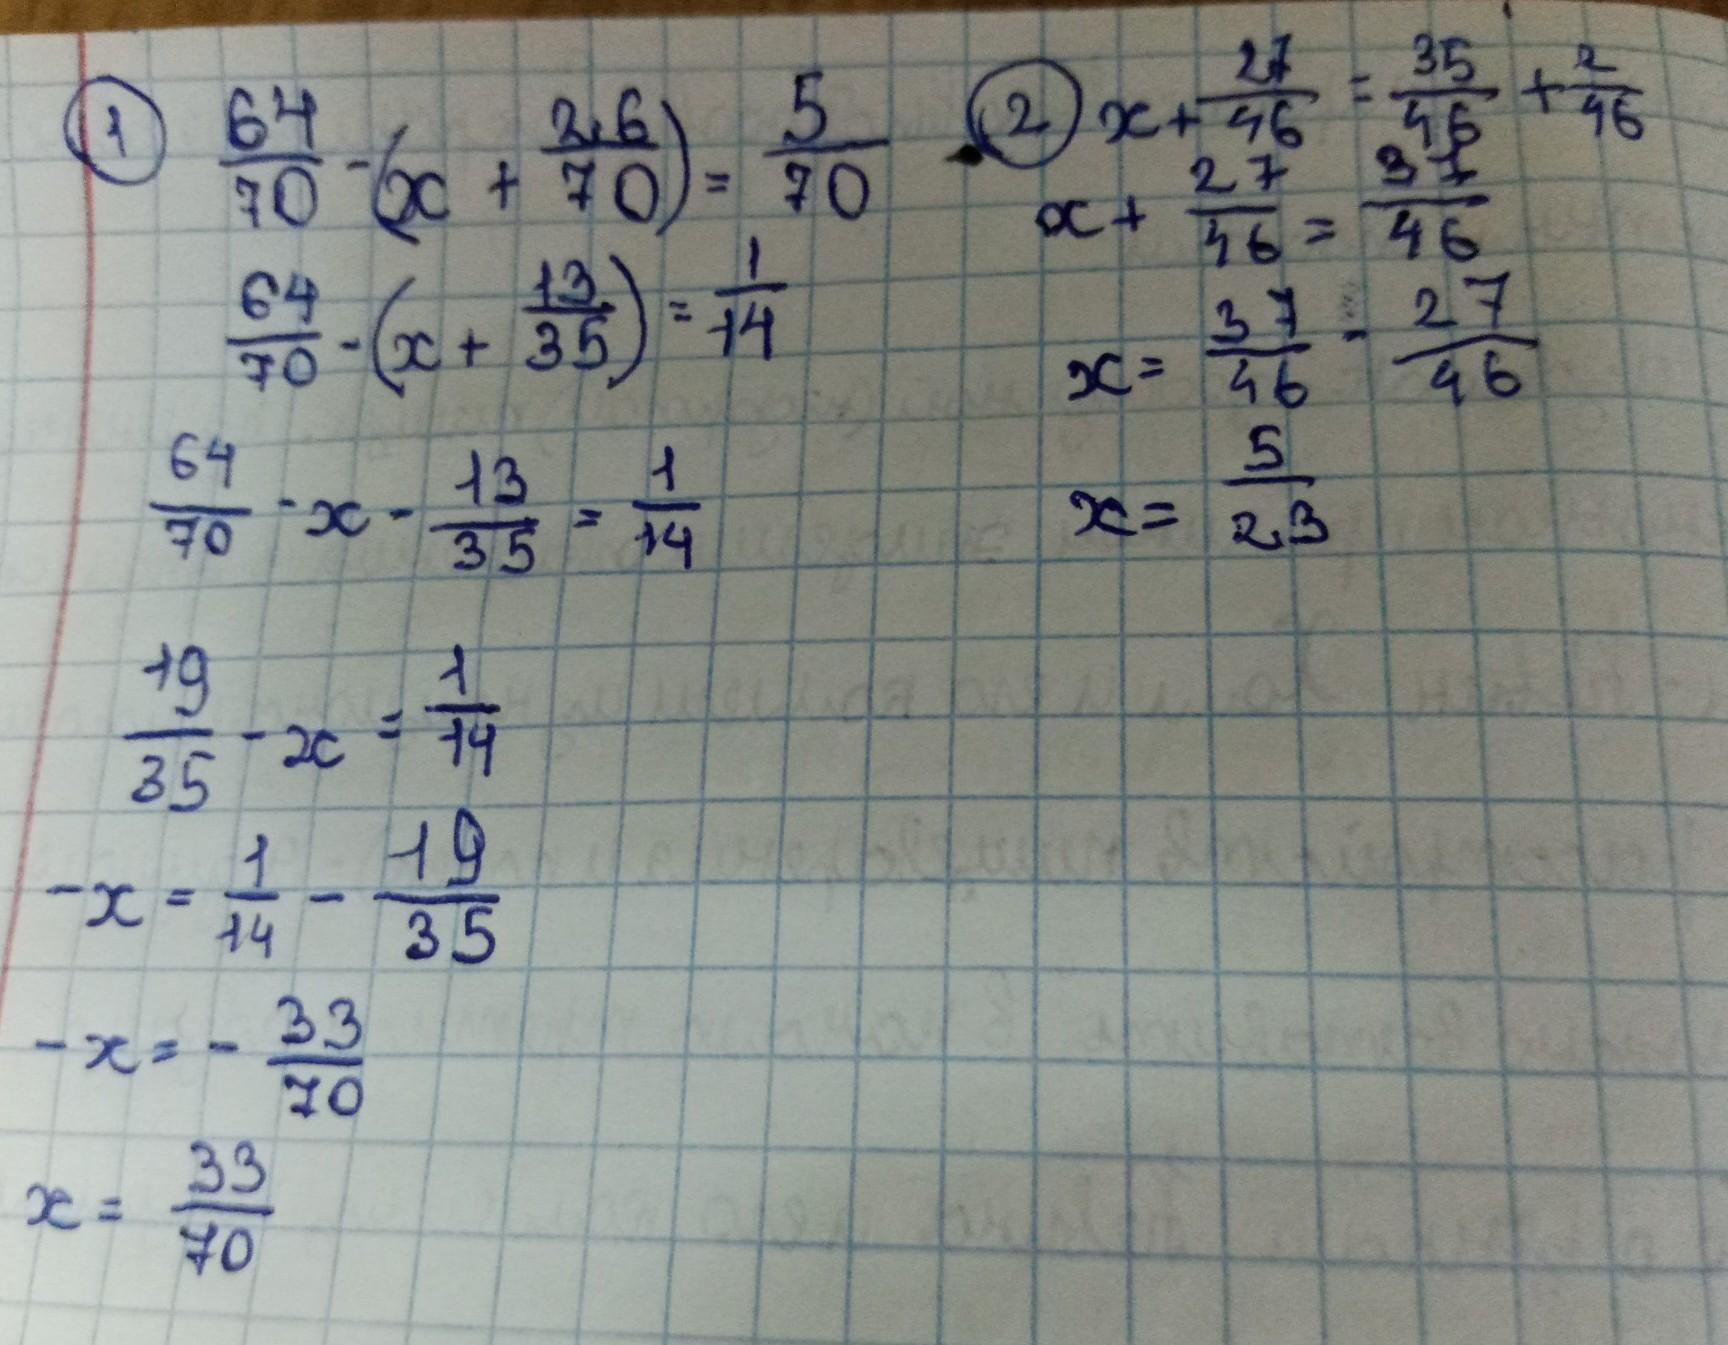 ① 64/70 - (x + 26/70) = 5/70
64/70 - (x + 13/35) = 1/14
64/70 - x - 13/35 = 1/14
19/35 - x = 1/14
-x = 1/14 - 19/35
-x = - 33/70
x = 33/70
② x + 27/46 = 35/46 + 2/46
x + 27/46 = 37/46
x = 37/46 - 27/46
x = 5/23